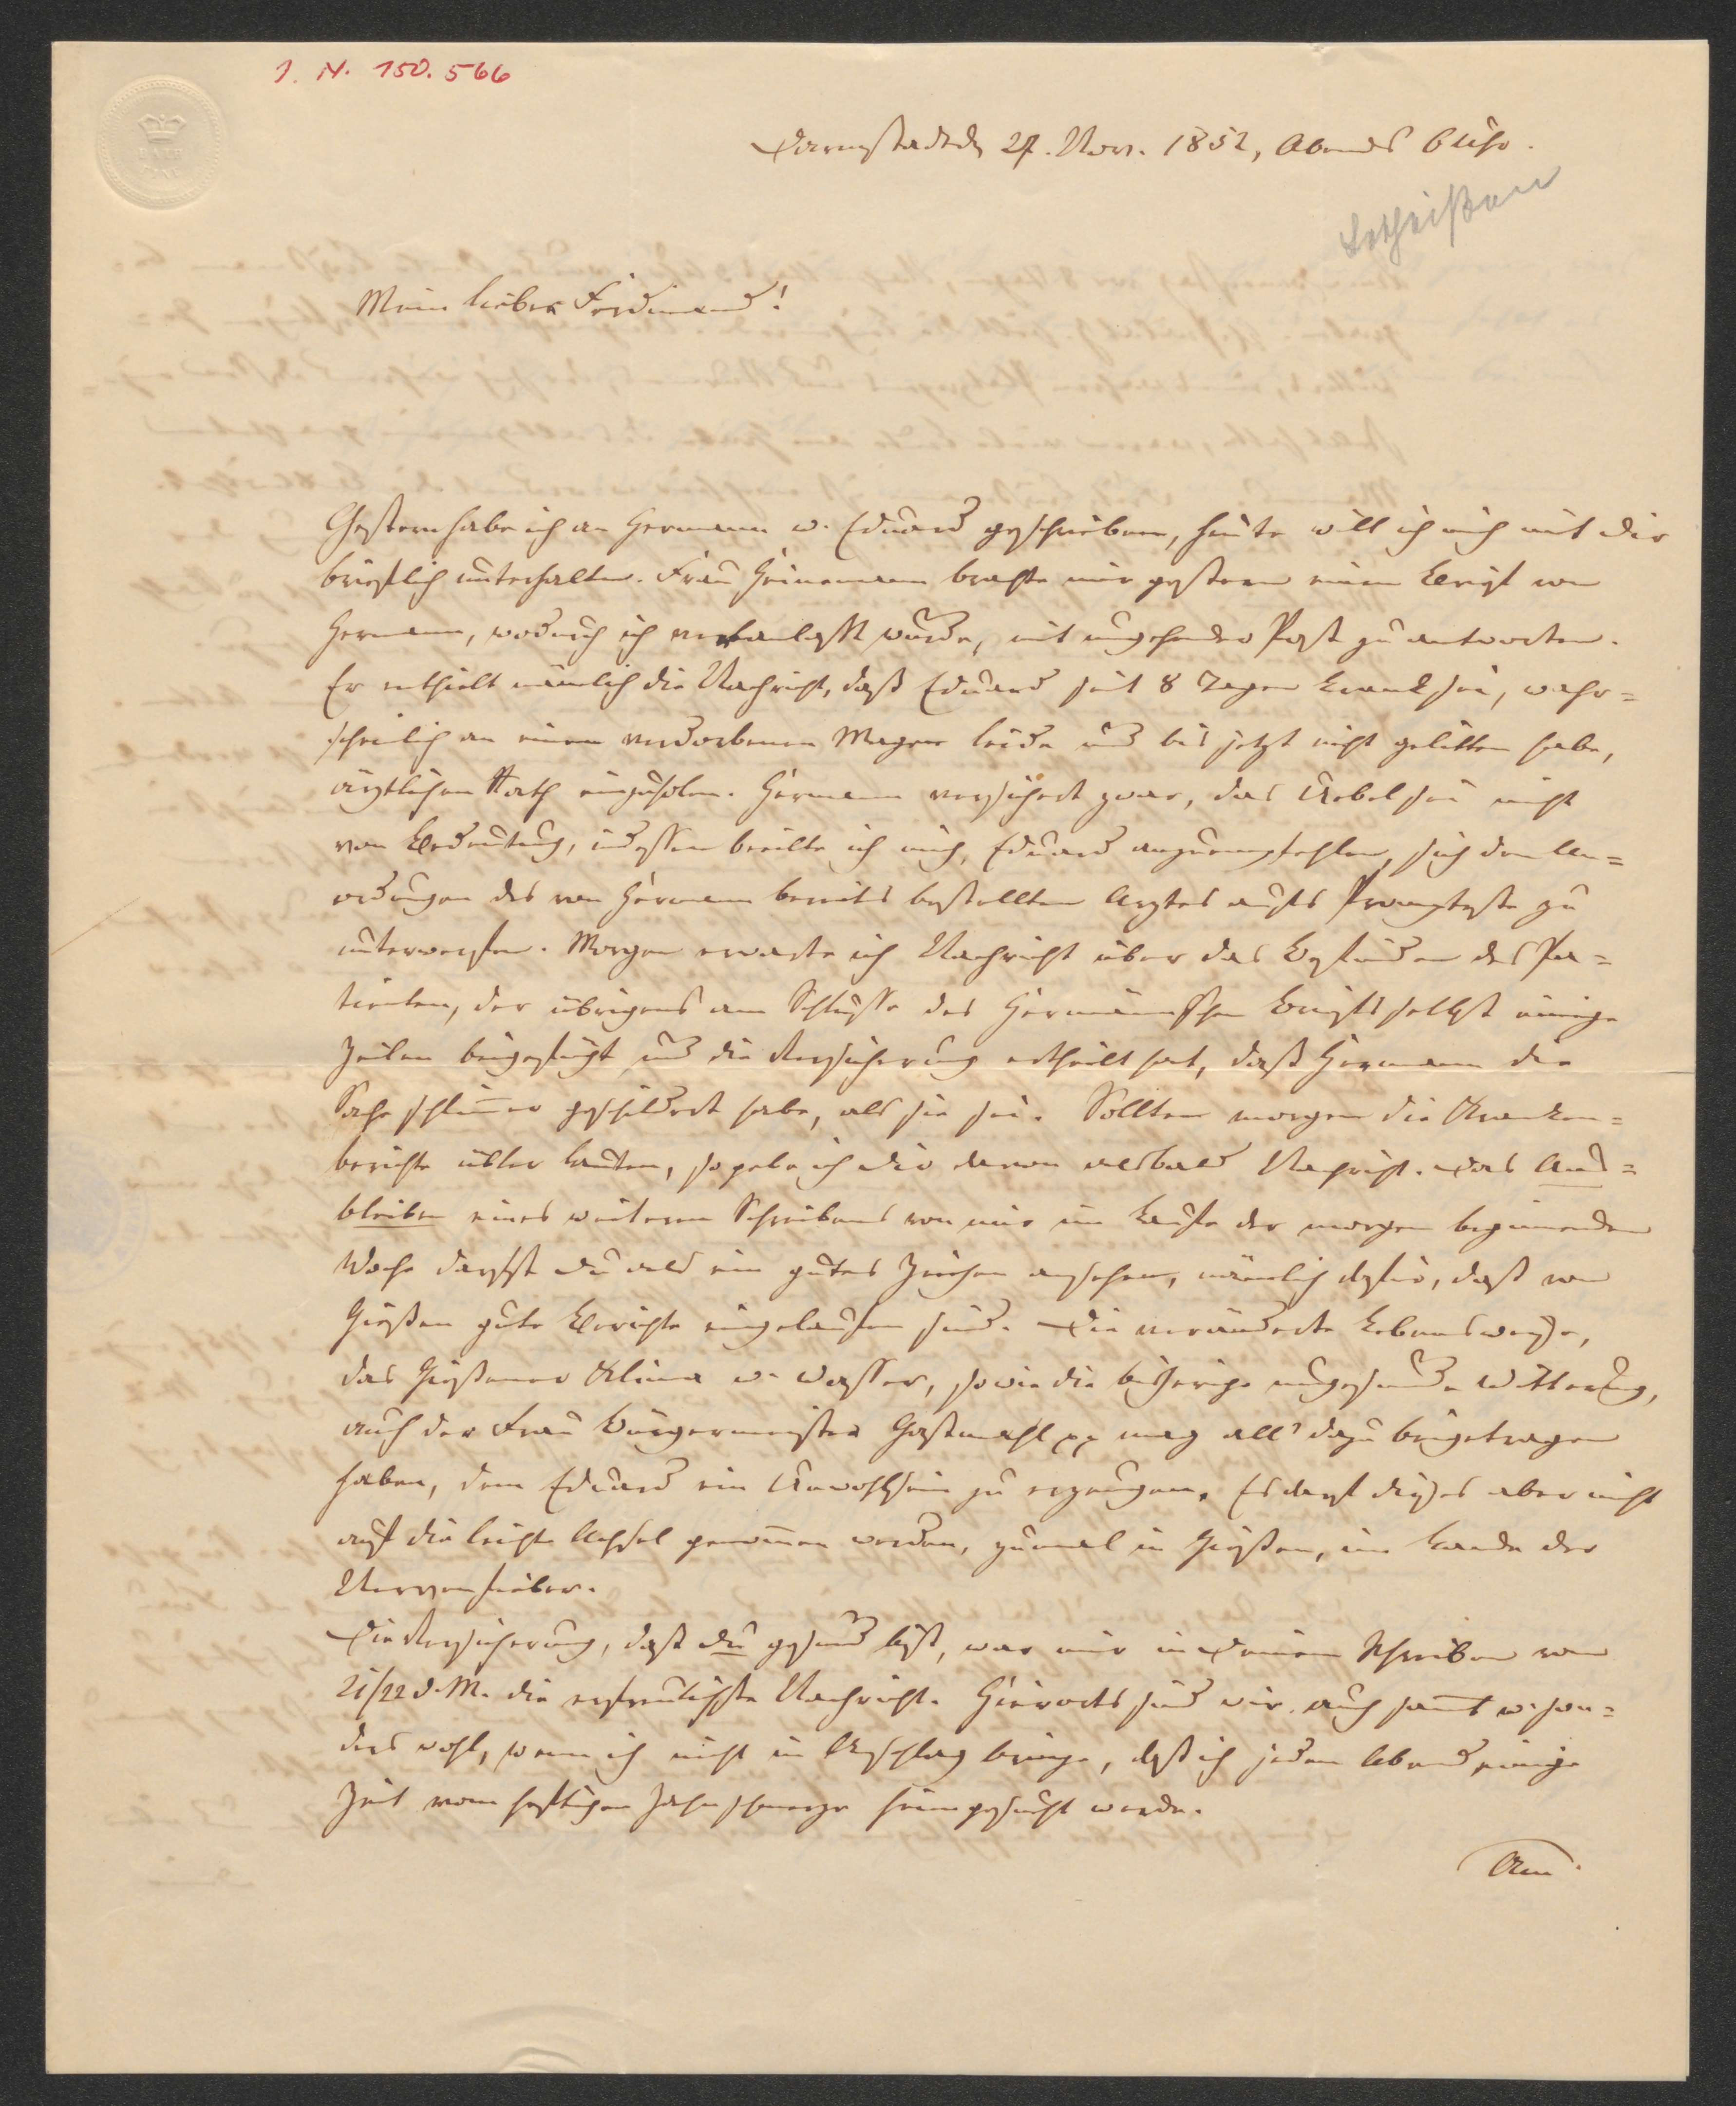 I. N. 150.566
Darmstadt d. 27. Nov. 1852, Abends 6 Uhr.
Lotheißen
Mein lieber Ferdinand!
Gestern habe ich an Hermann u. Eduard geschrieben, heute will ich mich mit Dir
brieflich unterhalten. Frau Heinemann brachte mir gestern einen Brief von
Hermann, wodurch ich veranlaßt wurde, mit umgehender Post zu antworten.
Er enthielt nämlich die Nachricht, daß Eduard seit 8 Tagen krank sei, wahr=
scheinlich an einem verdorbenen Magen leide und bis jetzt nicht gelitten habe,
ärztlichen Rath einzuholen. Hermann versichert zwar, das Uebel sei nicht
von Bedeutung, indessen beeilte ich mich, Eduard anzuempfehlen, sich den An=
ordnungen des von Hermann bereits bestellten Arztes aufs Prompteste zu
unterwerfen. Morgen erwarte ich Nachricht über das Befinden des Pa=
tienten, der übrigens am Schlusse des Hermännischen Briefs selbst einige
Zeilen beigefügt und die Versicherung ertheilt hat, daß Hermann die
Sache schlim̄er geschildert habe, als sie sei. Sollten morgen die Kranken=
berichte übler lauten, so gebe ich Dir davon alsbald Nachricht. Das Aus=
bleiben eines weiteren Schreibens von mir im Laufe der morgen beginnenden
Woche darfst Du als ein gutes Zeichen ansehen, nämlich dafür, daß von
Gießen gute Berichte eingelaufen sind. Die veränderte Lebensweise,
das Gießener Klima u. Wasser, sowie die bisherige ungesunde Witterung,
auch der Frau Bürgermeister Gastmahl pp mag all' dazu beigetragen
haben, dem Eduard ein Unwohlsein zu erzeugen. Es darf dieses aber nicht
auf die leichte Achsel genom̄en werden, zumal in Gießen, im Lande der
Nervenfieber.
Die Versicherung, daß Du gesund bist, war mir in Deinem Schreiben vom
21/22 d. M. die erfreulichste Nachricht. Hierorts sind wir auch samt u. son=
ders wohl, wenn ich nicht in Anschlag bringe, daß ich jeden Abend einige
Zeit vom heftigen Zahnschmerze heimgesucht werde.
Am